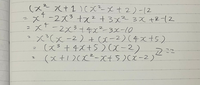 (x² x+1)(x²-x+2)-12
= x⁴-2x³+x²+3x²-3x+2-12
= x⁴-2x³+4x²-3x-10
= x³(x-2)+(x-2)(4x+5)
= (x³+4x+5)(x-2)
= (x+1)(x²-x+5)(x-2)